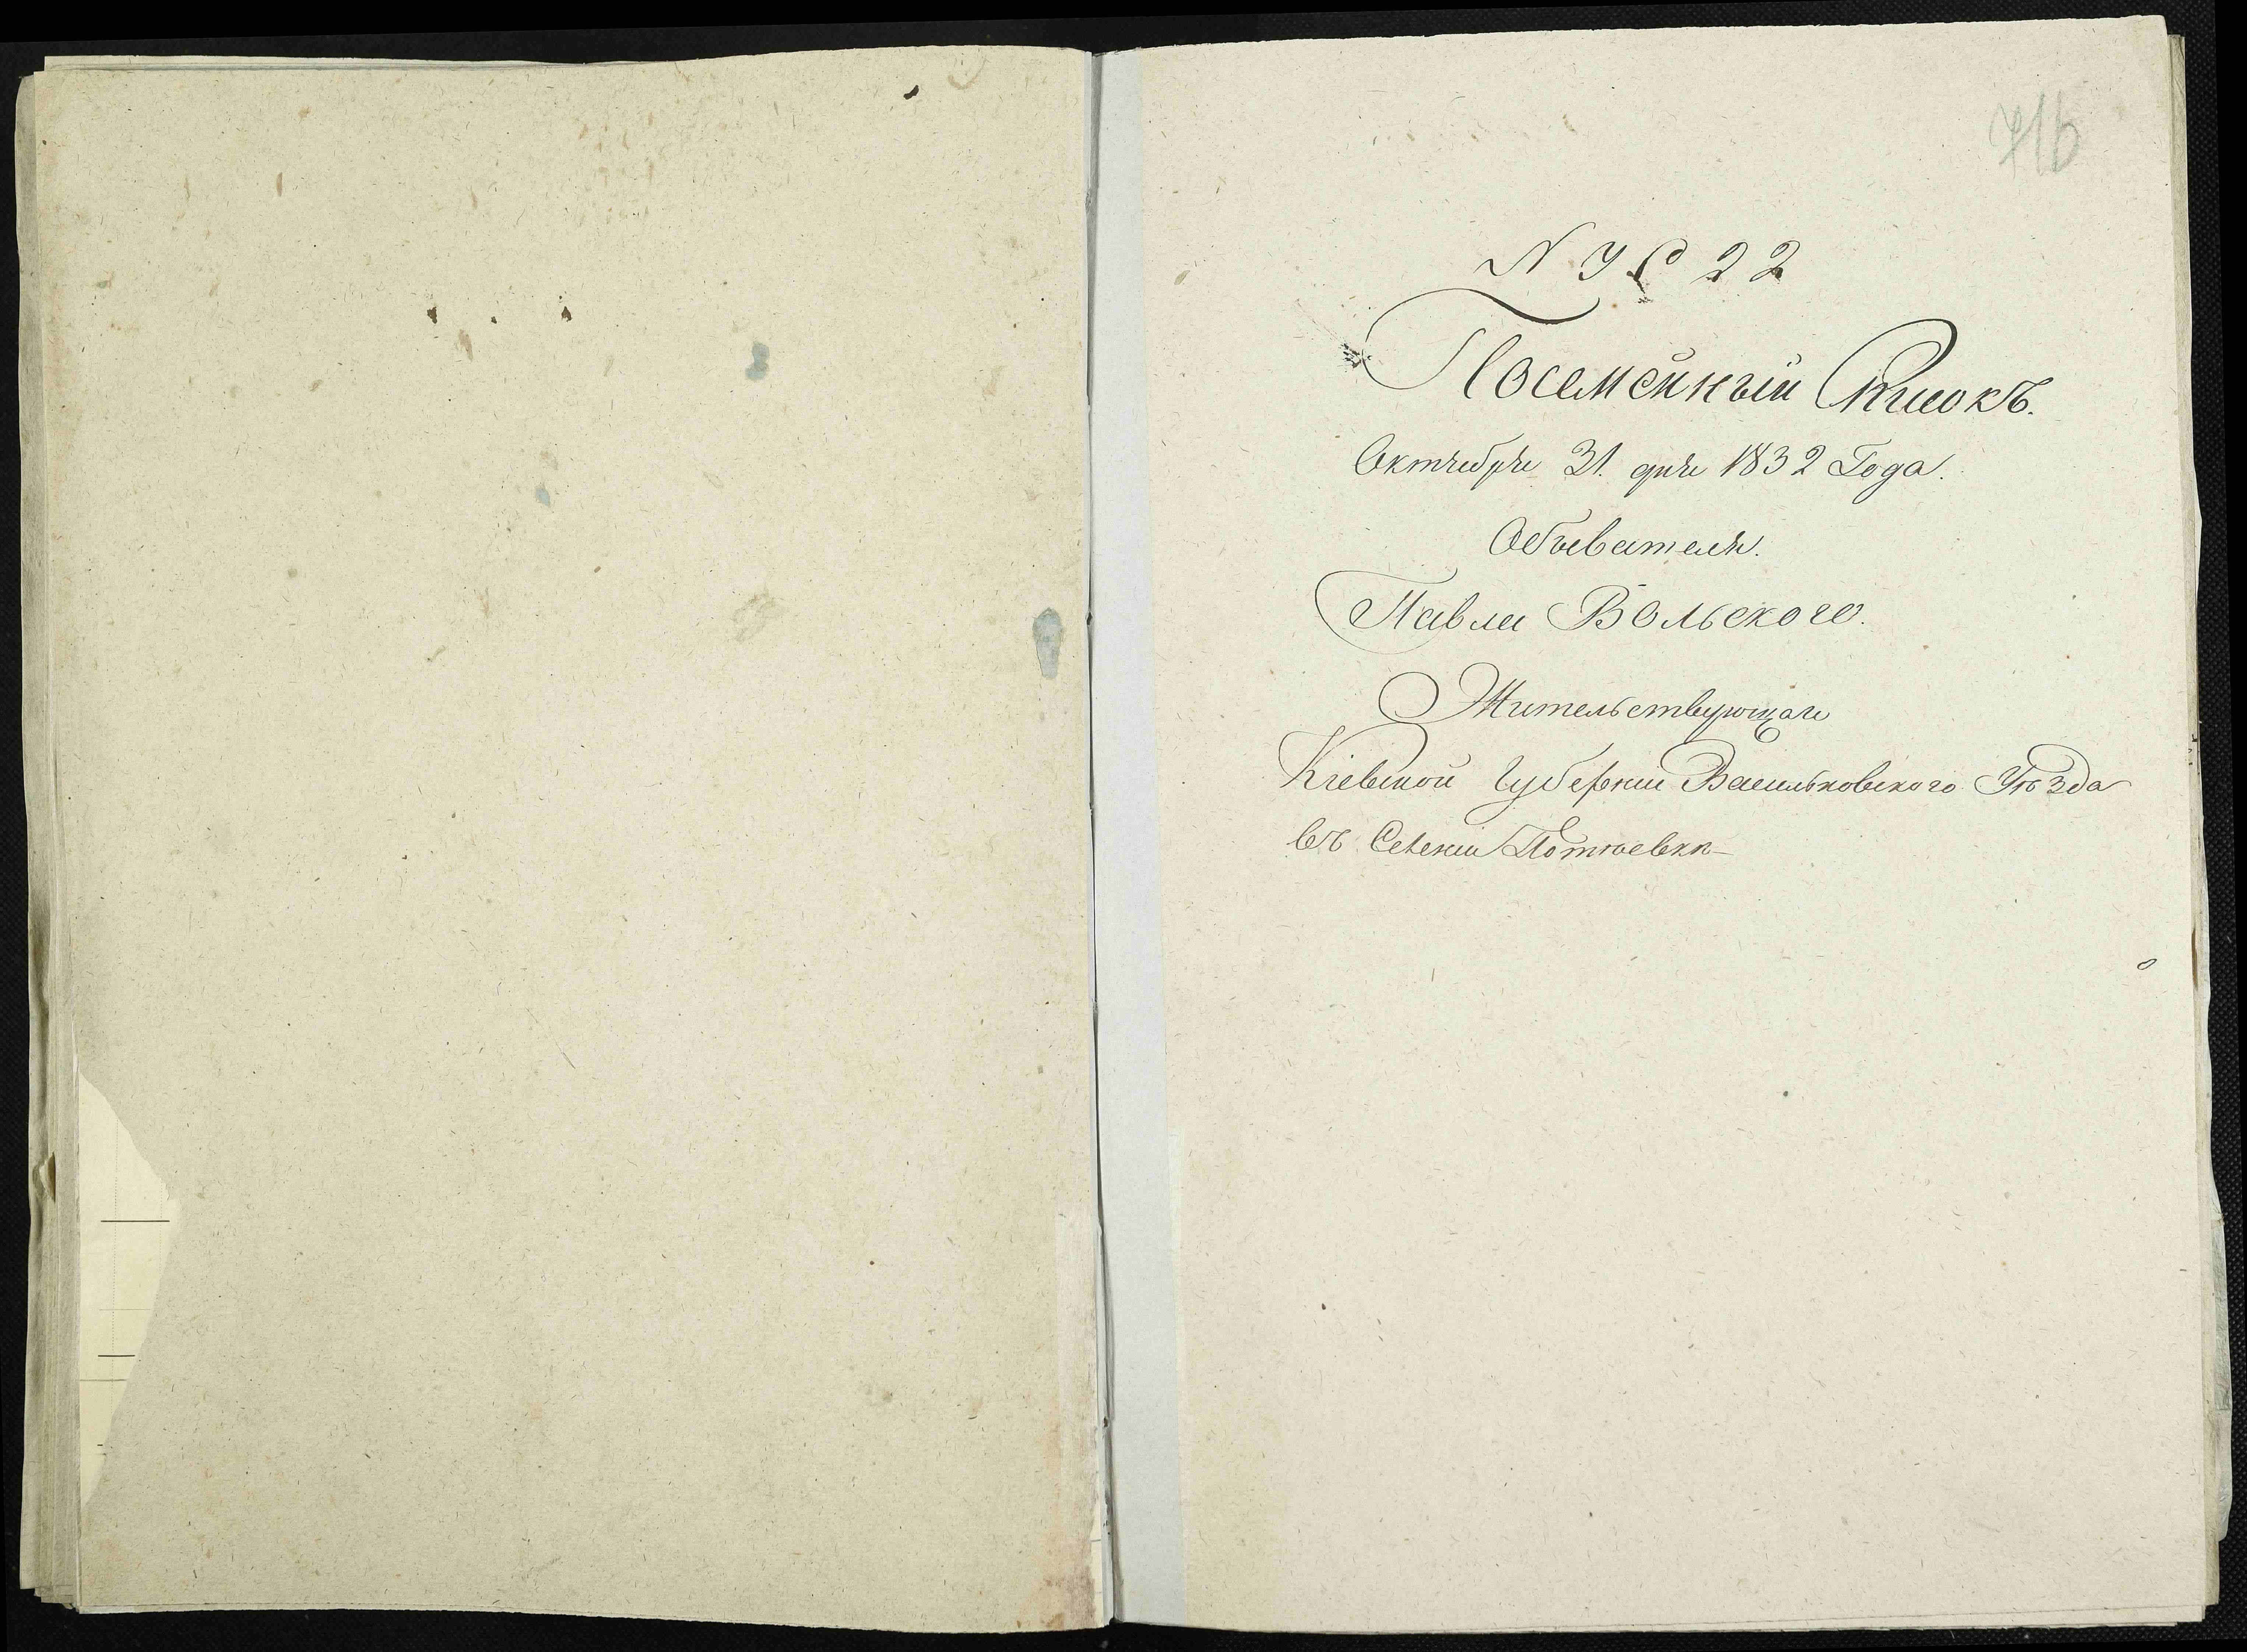 716
N 22
Посемейный Списокъ.
Октября 31. дня 1832 Года.
Обывателя.
Павла Вольского.
Жительствующаго
Кіевской Губерніи Васильковского Уѣзда
въ Селеніи